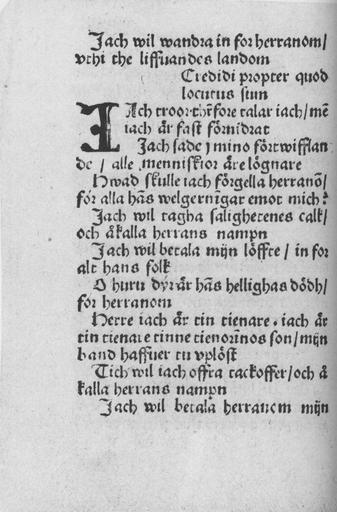 Jach wil wandra in for herranom/
vthi the liffuandes landom
Credidi propter quod
locutus sum
IAch troor thr̄fore talar iach/ mē
iach är fast förnidrat
Jach sade j mino förtwifflan
de / alle menniskior äre lögnare
Hwad skulle iach förgella herranō/
för alla hās welgernīgar emot mich?
Jach wil tagha salighetenes calk/
och åkalla herrans nampn
Jach wil betala mijn löffte / in for
alt hans folk
O huru dyr är hās hellighas dödh/
for herranom
Herre iach är tin tienare. iach är
tin tienare tinne tienorinos son/mijn
band haffuer tu vplöst
Tich wil iach offra tackoffer/och å
kalla herrans nampn
Jach wil betala herranom mijn